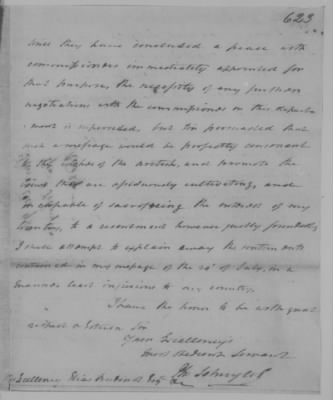 623
since they have concluded a peace with
commissioners immediately appointed for
that purpose, the necessity of any further
negotiations with the commissioners in this depart
-ment is superseded, but I'm persuaded that
such a message would be perfectly consonant
to the of the British, and promote the
they are assiduously cultivating, and
incapable of sacrificing the interest of my
Country, to a resentment however justly founded,
I shall attempt to explain away the sentiments
contained in my message of the of July, in a
manner least injurious to my country.
I have the honor to be with great
respect & Esteem Sir
Your Excellency's
most obedient Servant
Ph: Schuyler
His Excellency Elias Boudinot Esqr &c